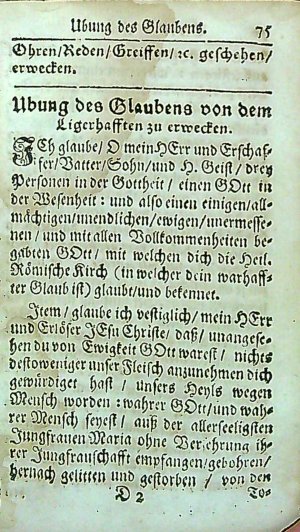 Ubung des Glaubens. 75
Ohren/Reden/Greiffen/ ꝛc. geschehen/
erwecken.
Ubung des Glaubens von dem
Ligerhafften zu erwecken.
JCh glaube/ O mein HErr und Erschaf-
fer/Vatter/Sohn/und H. Geist/ drey
Personen in der Gottheit/ einen GOtt in
der Wesenheit: und also einen einigen/all-
mächtigen/unendlichen/ewigen/unermesse-
nen/und mit allen Vollkommenheiten be-
gabten GOtt/ mit welchen dich die Heil.
Römische Kirch (in welcher dein warhaff-
ter Glaub ist) glaubt/und bekennet.
Item/ glaube ich vestiglich/ mein HErr
und Erlöser JEsu Christe/ daß/ unangese-
hen du von Ewigkeit GOtt warest/ nichts
destoweniger unser Fleisch anzunehmen dich
gewürdiget hast/ unsers Heyls wegen
Mensch worden: wahrer GOtt/und wah-
rer Mensch seyest/ auß der allerseeligsten
Jungfrauen Maria ohne Versehrung ih-
rer Jungfrauschafft empfangen/gebohren/
hernach gelitten und gestorben/ von den
D 2 To-